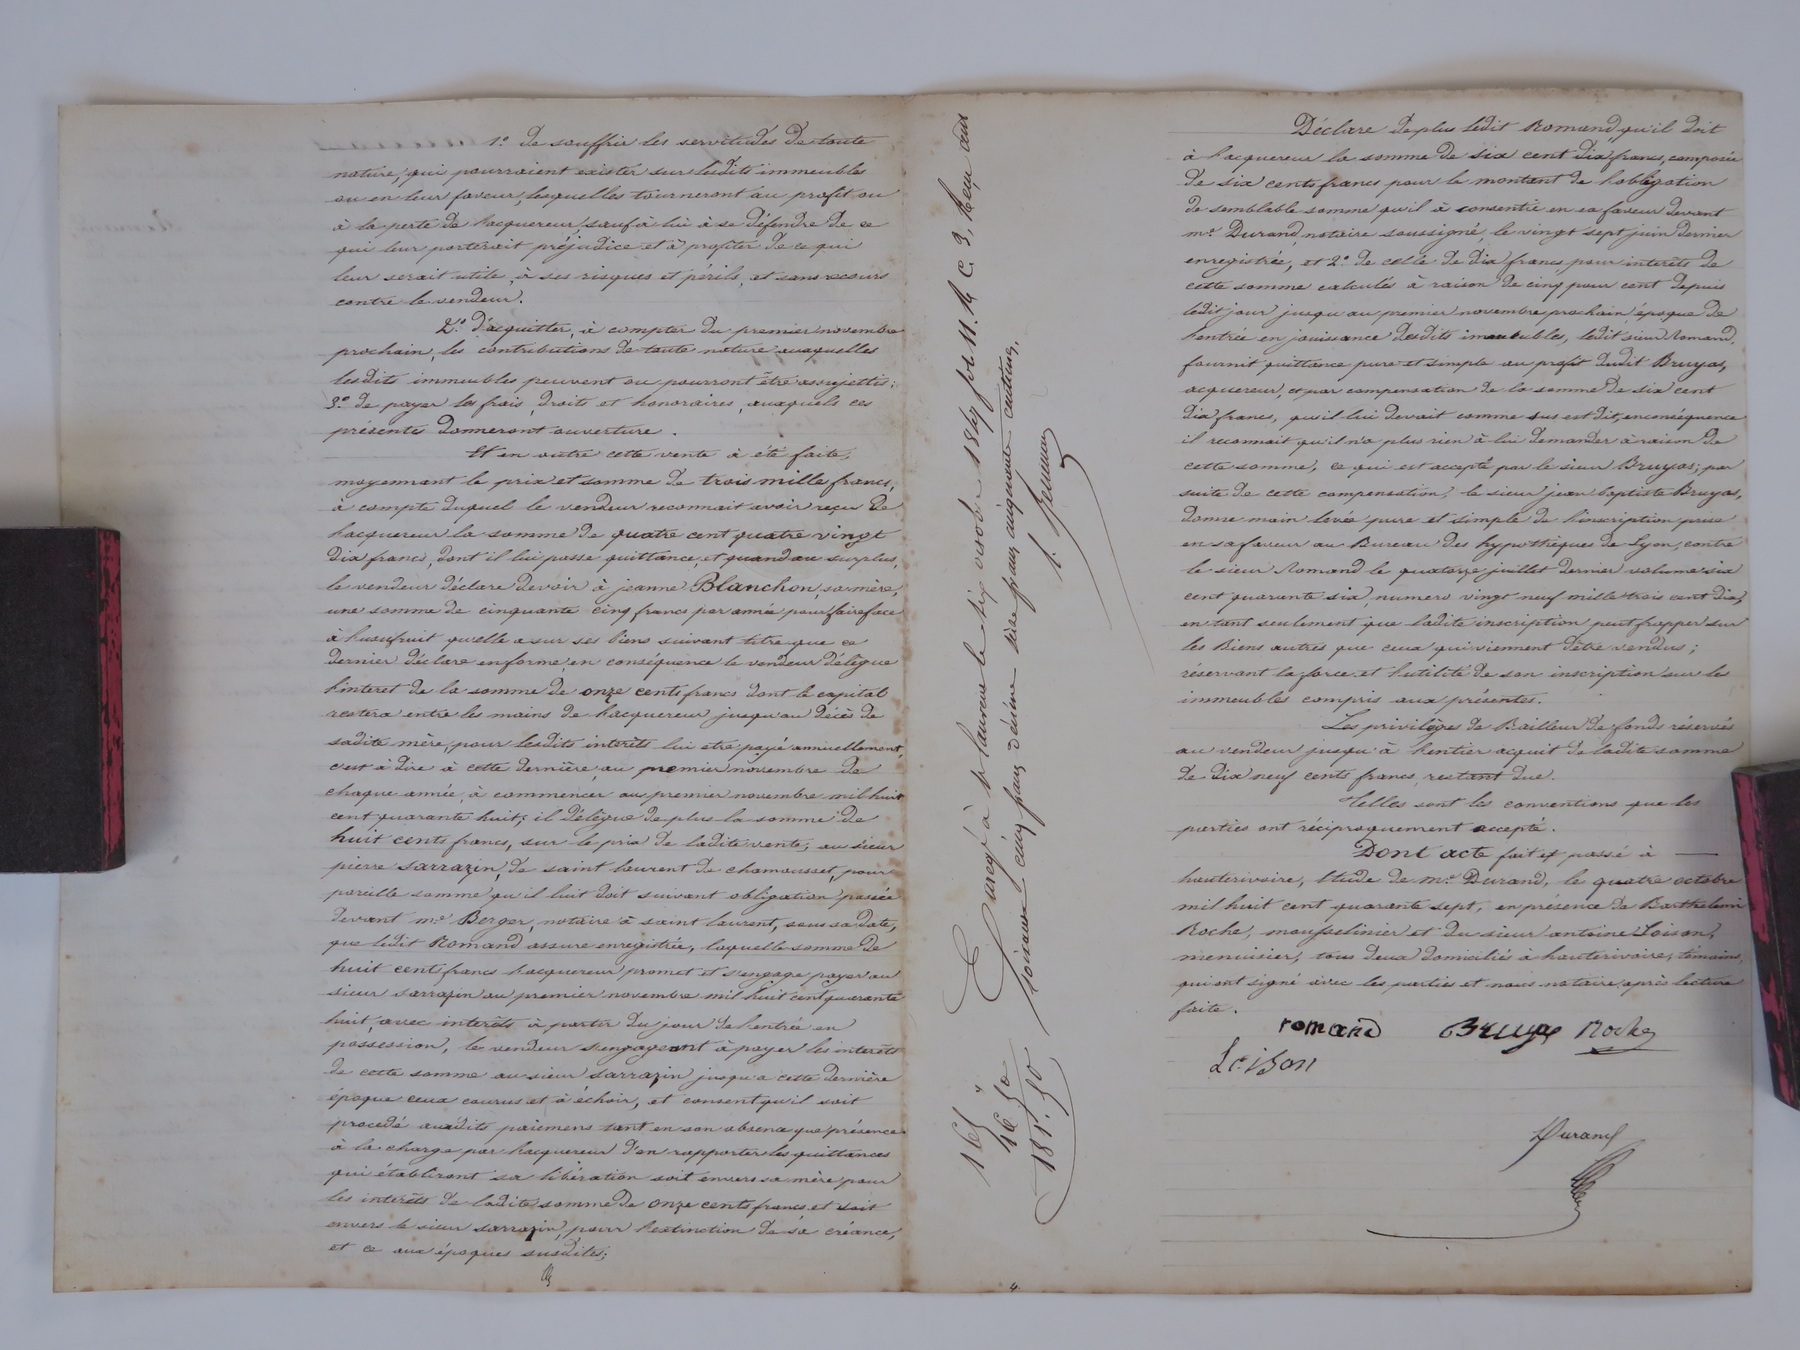 1.° de souffrir les servitudes de toute
nature, qui pourraient exister sur lesdits immeubles
ou en leur faveur, lesquelles tourneront au profit ou
à la perte de l'acquereur, sauf à lui à se défendre de ce
qui leur porterait préjudice et à profiter de ce qui
leur serait utile, à ses risques et périls, et sans recours
contre le vendeur.
2.° d'acquitter, à compter du premier novembre
prochain, les contributions de toute nature auxquelles
lesdits immeubles peuvent ou pourront être assujettis;
3.° de payer les frais, droits et honoraires, auxquels ces
présentes donneront ouverture.
Et en outre cette vente à été faite,
moyennant le prix et somme de trois mille francs,
à compte duquel le vendeur reconnait avoir reçu de
l'acquereur la somme de quatre cent quatre vingt
dix francs, dont il lui passe quittance, et quand au surplus,
le vendeur déclare devoir à jeanne Blanchon, sa mère,
une somme de cinquante cinq francs par année pour faire face
à l'usufruit qu'elle a sur ses biens suivant titre que ce
dernier déclare en forme, en conséquence le vendeur délègue
l'interet de la somme de onze cents francs dont le capital
restera entre les mains de l'acquereur jusqu'au décès de
sadite mère, pour lesdits intérêts lui etre payé annuellement,
c'est à dire à cette dernière, au premier novembre de
chaque année, à commencer au premier novembre mil huit
cent quarante huit; il délègue de plus la somme de
huit cents francs, sur le prix de ladite vente, au sieur
pierre sarrazin, de saint laurent de chamousset, pour
pareille somme qu'il luit doit suivant obligation passée
devant m.e Berger, notaire à saint laurent, sous sa date,
que ledit Romand assure enregistrée, laquelle somme de
huit cents francs l'acquereur promet et s'engage payer au
sieur sarrazin au premier novembre mil huit cent quarante
huit, avec intérêts à partir du jour de l'entrée en
possession, le vendeur s'engageant à payer les intérêts
de cette somme au sieur sarrazin jusqu'a cette dernière
époque ceux courus et à échoir, et consent qu'il soit
procedé auxdits paiemens tant en son absence que présence
à la charge par l'acquereur d'en rapporter les quittances
qui établiront sa libération soit envers sa mère pour
les intérêts de ladite somme de onze cents francs et soit
envers le sieur sarrazin, pour l'extinction de sa créance,
et ce aux époques susdites;
Enregé à St Laurent le six octobre 1847 fol. 11. R. C. 3, Reçu cent
soixante cinq francs, décime seize francs cinquante centimes.
165 "
16. 50
181. 50
4
Déclare de plus ledit Romand, qu'il doit
à l'acquereur la somme de six cent dix francs, composée
de six cents francs pour le montant de l'obligation
de semblable somme qu'il à consentie en sa faveur devant
m.e Durand, notaire soussigné, le vingt sept juin dernier
enregistrée, et 2.° de celle de dix francs, pour interêts de
cette somme calculés à raison de cinq pour cent depuis
ledit jour jusqu'au premier novembre prochain, époque de
l'entrée en jouissance desdits immeubles, ledit sieur Romand,
fournit quittance pure et simple au profit dudit Bruyas,
acquereur, et par compensation de la somme de six cent
dix francs, qu'il lui devait comme sus est dit, en conséquence
il reconnait qu'il n'a plus rien à lui demander à raison de
cette somme, ce qui est accepté par le sieur Bruyas; par
suite de cette compensation, le sieur jean baptiste Bruyas,
donne main levée pure et simple de l'inscription prise
en sa faveur au Bureau des hypothèques de Lyon, contre
le sieur Romand le quatorze juillet dernier volume six
cent quarante six, numero vingt neuf mille trois cent dix,
en tant seulement que ladite inscription peut frapper sur
les Biens autres que ceux qui viennent d'être vendus;
réservant la force et l'utilité de son inscription sur les
immeubles compris aux présentes.
Les privilèges de Bailleur de fonds réservés
au vendeur jusqu'à l'entier acquit de ladite somme
de dix neuf cents francs, restant due.
Telles sont les conventions que les
parties ont réciproquement accepté.
Dont acte fait et passé à
hauterivoire, Etude de m.e Durand, le quatre octobre
mil huit cent quarante sept, en présence de Barthelemi
Roche, mousselinier et du sieur antoine Loison,
menuisier, tous deux domiciliés à hauterivoire, témoins,
qui ont signé avec les parties et nous notaire, après lecture
faite.
romand Bruyas Roche
Loison
Durand